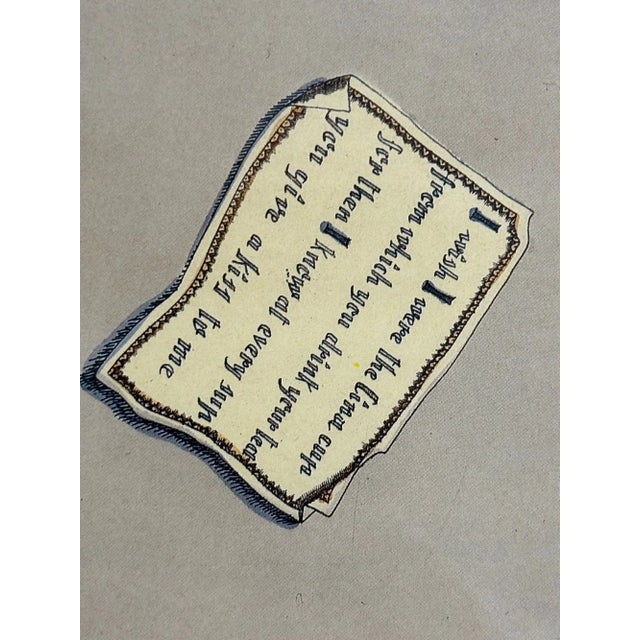 I wish I were the Cina cup
from which you drink your tea
for then I know at every sup
you give a kiss to me